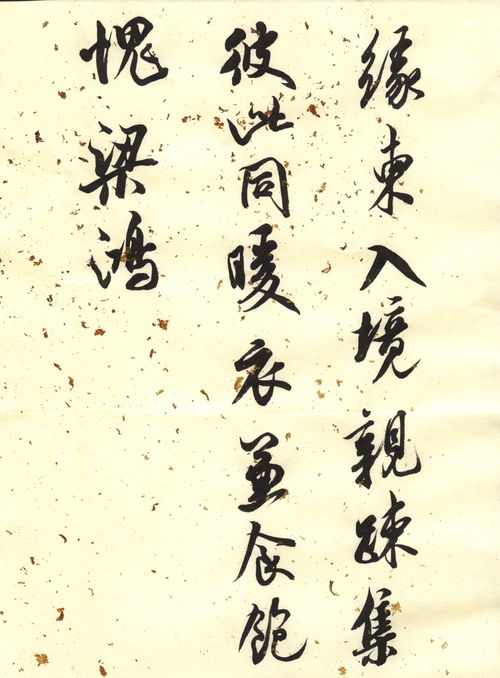 緣東入境親踈集
彼此同暖衣並食飽
愧梁鴻